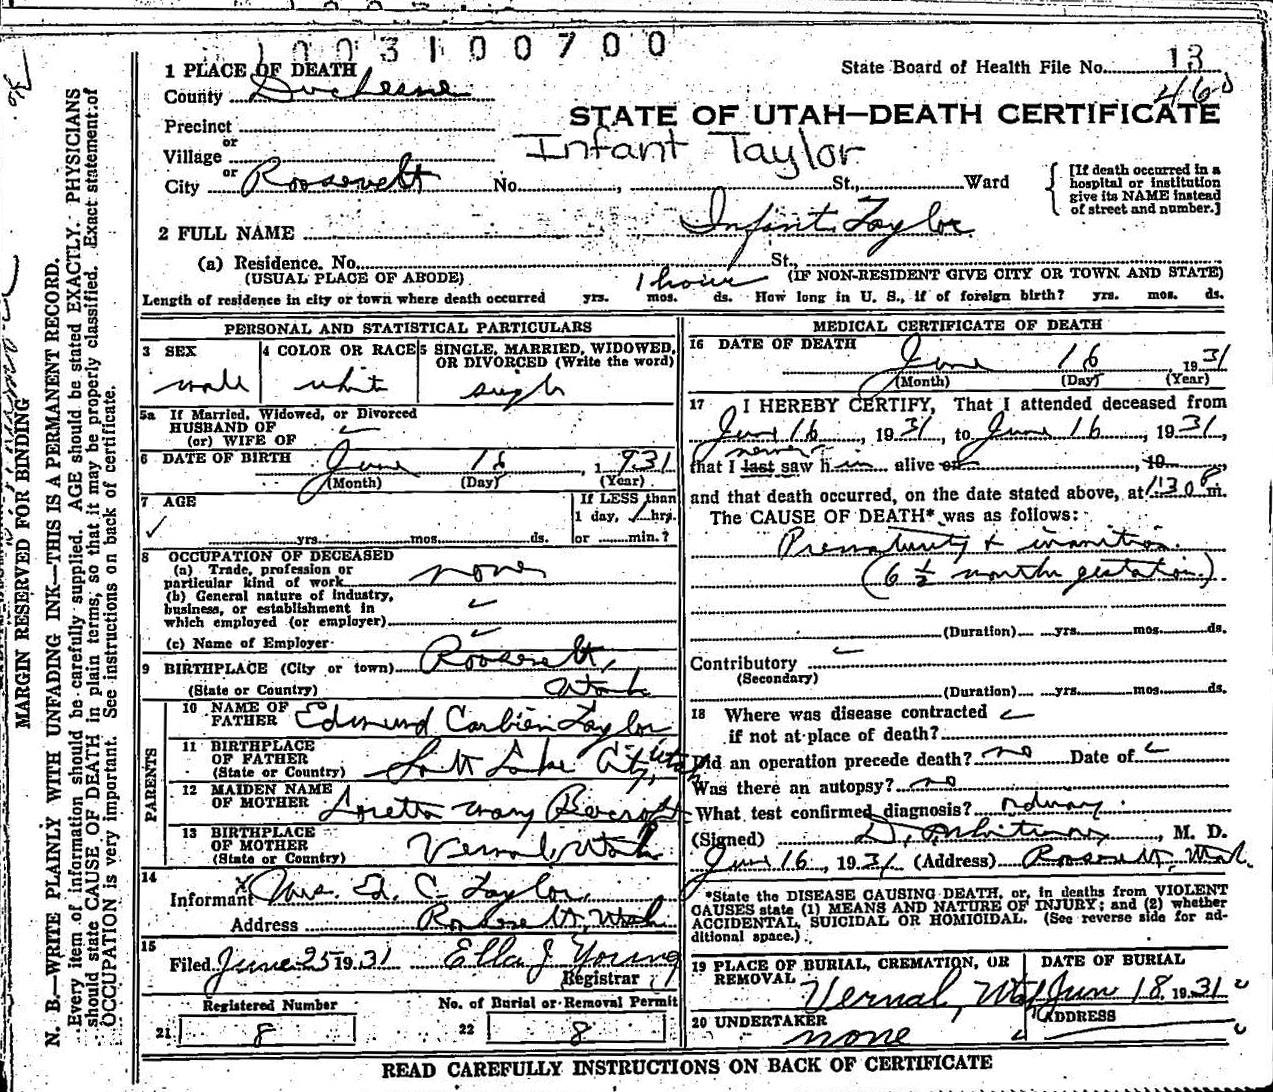 1003100700
1 PLACE OF DEATH
State Board of Health File No. 13
County Duchesne
460
STATE OF UTAH—DEATH CERTIFICATE
Precinct
or
Infant Taylor
Village
or
City Roosevelt No. , St., Ward
[If death occurred in a hospital or institution give its NAME instead of street and number.]
2 FULL NAME Infant Taylor
(a) Residence. No. St.,
(USUAL PLACE OF ABODE) (IF NON-RESIDENT GIVE CITY OR TOWN AND STATE)
1 hour
Length of residence in city or town where death occurred yrs. mos. ds. How long in U. S., if of foreign birth? yrs. mos. ds.
MARGIN RESERVED FOR BINDING
N. B.—WRITE PLAINLY WITH UNFADING INK—THIS IS A PERMANENT RECORD.
Every item of information should be carefully supplied. AGE should be stated EXACTLY. PHYSICIANS
should state CAUSE OF DEATH in plain terms, so that it may be properly classified. Exact statement of
OCCUPATION is very important. See instructions on back of certificate.
PERSONAL AND STATISTICAL PARTICULARS
3 SEX 4 COLOR OR RACE 5 SINGLE, MARRIED, WIDOWED,
OR DIVORCED (Write the word)
male white single
5a If Married, Widowed, or Divorced
HUSBAND OF
(or) WIFE OF
6 DATE OF BIRTH June 16, 1931
(Month) (Day) (Year)
7 AGE If LESS than
1 day, 1 hrs.
yrs. mos. ds. or min.?
8 OCCUPATION OF DECEASED
(a) Trade, profession or
particular kind of work none
(b) General nature of industry,
business, or establishment in
which employed (or employer)
(c) Name of Employer
9 BIRTHPLACE (City or town) Roosevelt,
(State or Country) Utah
PARENTS
10 NAME OF
FATHER Edmund Taylor
11 BIRTHPLACE
OF FATHER
(State or Country) Salt Lake City, Utah
12 MAIDEN NAME
OF MOTHER Loretta Mary
13 BIRTHPLACE
OF MOTHER
(State or Country) Vernal, Utah
14
Informant Mrs. E. C. Taylor,
Address Roosevelt, Utah
15
Filed June 25 1931 Ella J Young
Registrar
Registered Number No. of Burial or Removal Permit
21 8 22 8
MEDICAL CERTIFICATE OF DEATH
16 DATE OF DEATH
June 16 1931
(Month) (Day) (Year)
17 I HEREBY CERTIFY, That I attended deceased from
June 16, 1931, to June 16, 1931,
never
that I last saw him alive on , 19
and that death occurred, on the date stated above, at 1:30 P m.
The CAUSE OF DEATH* was as follows:
Prematurity & inanition.
(6 1/2 months gestation.)
(Duration) yrs. mos. ds.
Contributory
(Secondary)
(Duration) yrs. mos. ds.
18 Where was disease contracted
if not at place of death?
Did an operation precede death? no Date of
Was there an autopsy? no
What test confirmed diagnosis?
(Signed) , M. D.
June 16, 1931 (Address) Roosevelt, Utah.
*State the DISEASE CAUSING DEATH, or, in deaths from VIOLENT
CAUSES state (1) MEANS AND NATURE OF INJURY; and (2) whether
ACCIDENTAL, SUICIDAL OR HOMICIDAL. (See reverse side for ad-
ditional space.)
19 PLACE OF BURIAL, CREMATION, OR
REMOVAL
DATE OF BURIAL
Vernal, Utah June 18, 1931
20 UNDERTAKER ADDRESS
none
READ CAREFULLY INSTRUCTIONS ON BACK OF CERTIFICATE